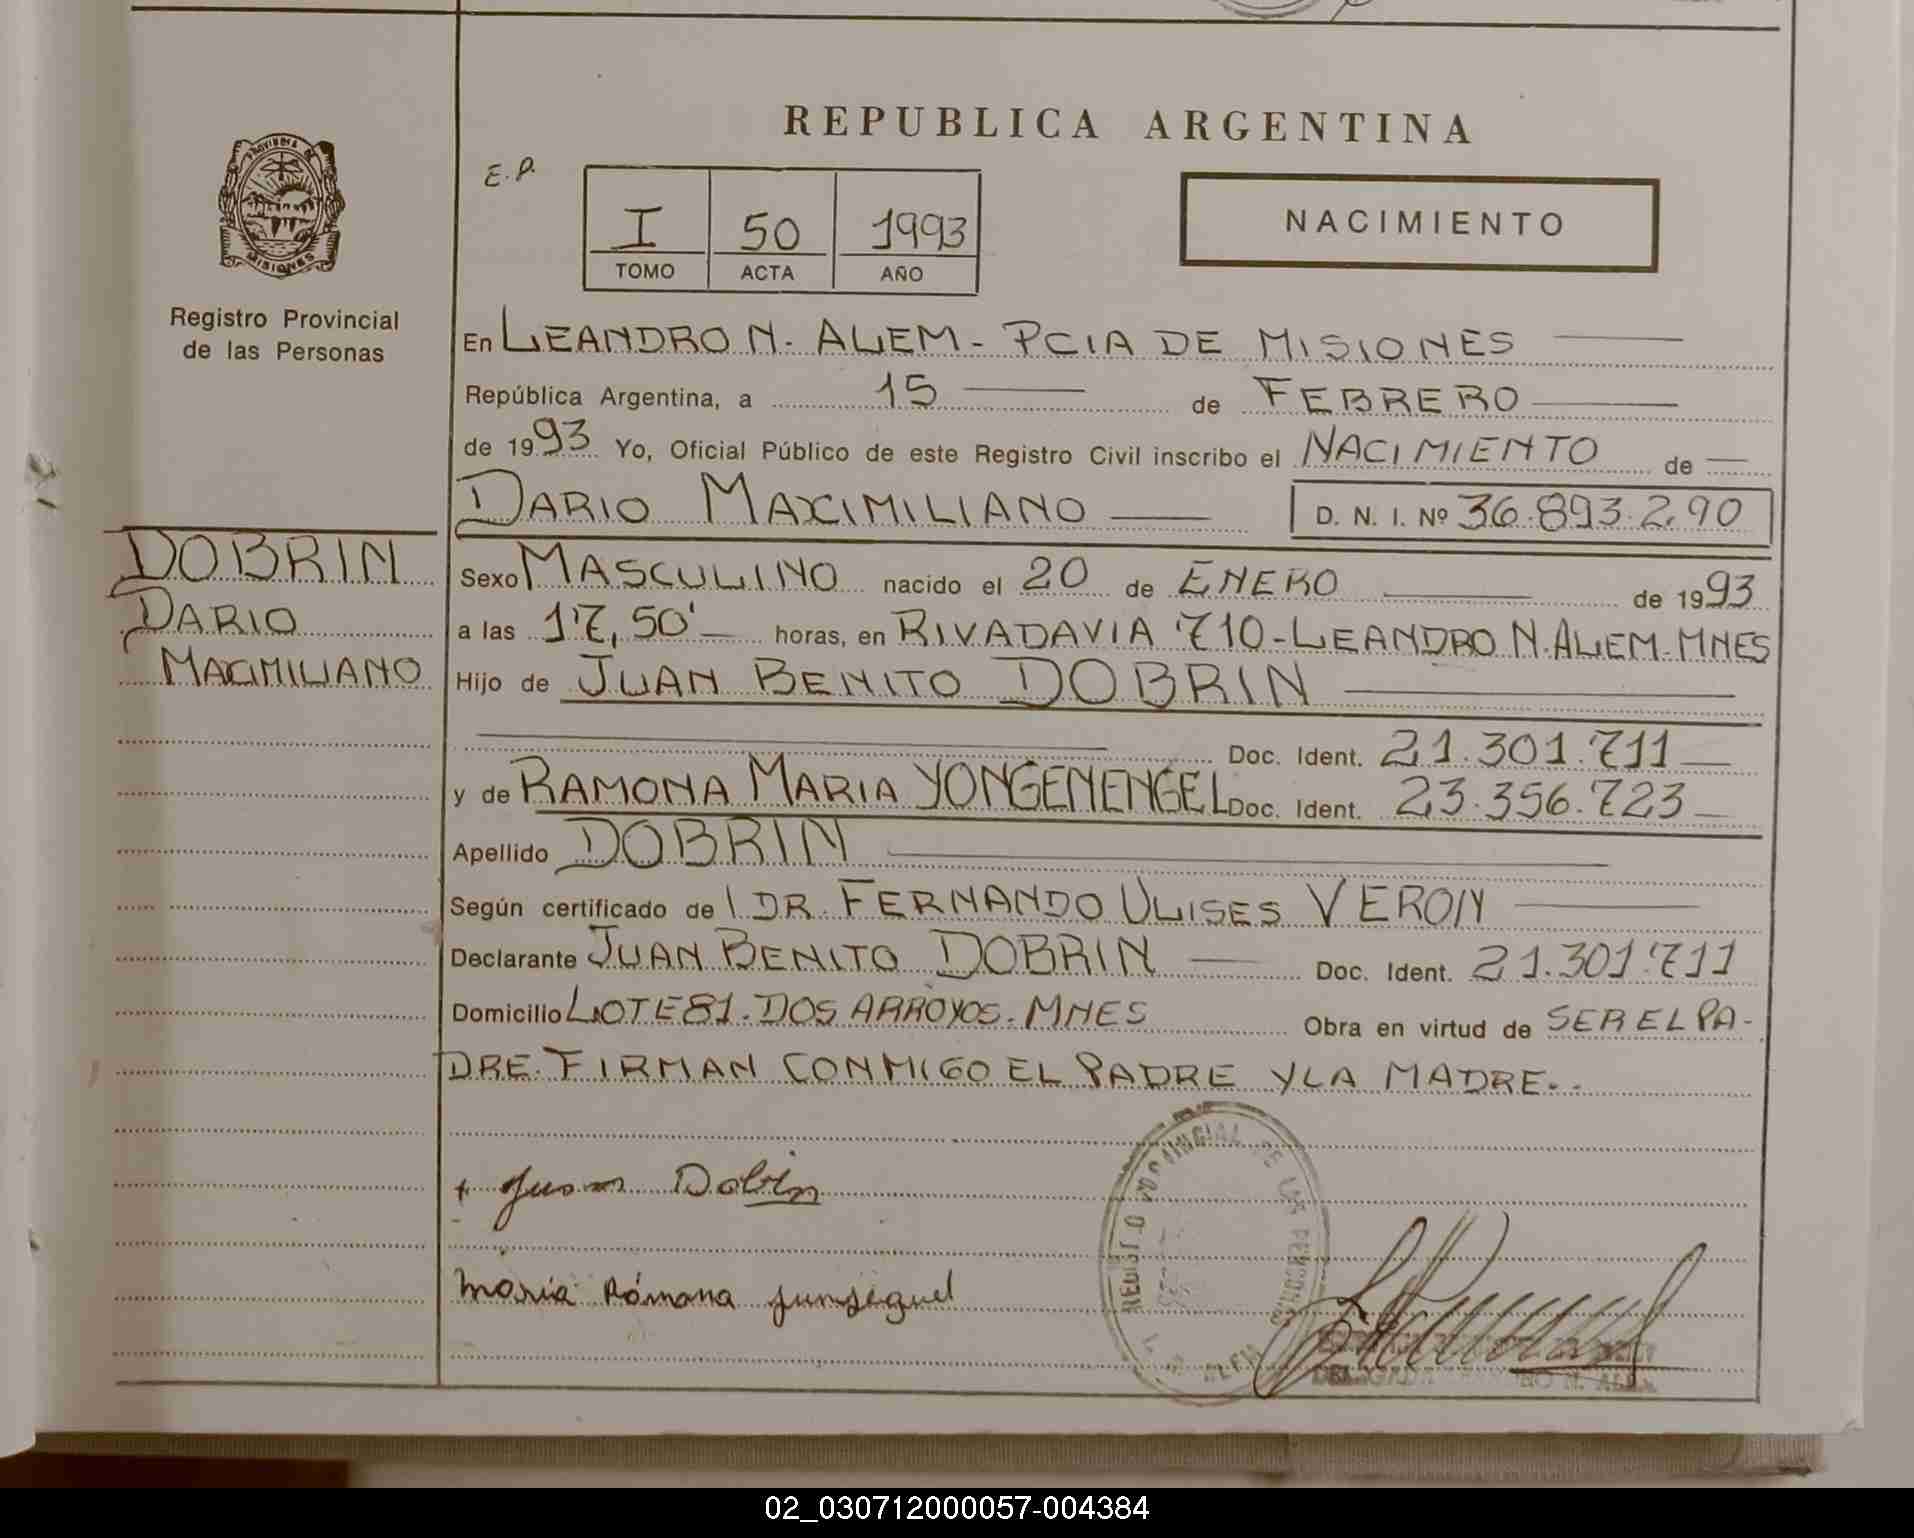 REPUBLICA ARGENTINA
E.P.
I 50 1993
TOMO ACTA AÑO
NACIMIENTO
PROVINCIA DE
MISIONES
Registro Provincial
de las Personas
DOBRIN
DARIO
MAXIMILIANO
En LEANDRO N. ALEM - PCIA DE MISIONES
República Argentina, a 15 de FEBRERO
de 1993 Yo, Oficial Público de este Registro Civil inscribo el NACIMIENTO de
DARIO MAXIMILIANO D. N. I. Nº 36.893.290
Sexo MASCULINO nacido el 20 de ENERO de 1993
a las 17,50' horas, en RIVADAVIA 710-LEANDRO N. ALEM-MNES
Hijo de JUAN BENITO DOBRIN
Doc. Ident. 21.301.711
y de RAMONA MARIA YONGENENGEL Doc. Ident. 23.356.723
Apellido DOBRIN
Según certificado de l DR. FERNANDO ULISES VERON
Declarante JUAN BENITO DOBRIN Doc. Ident. 21.301.711
Domicilio LOTE 81. DOS ARROYOS. MNES Obra en virtud de SER EL PA-
DRE. FIRMAN CONMIGO EL PADRE Y LA MADRE..
+ Juan Dobrin
REGISTRO PROVINCIAL DE LAS PERSONAS
L. N. ALEM
Maria Rámona
02_030712000057-004384